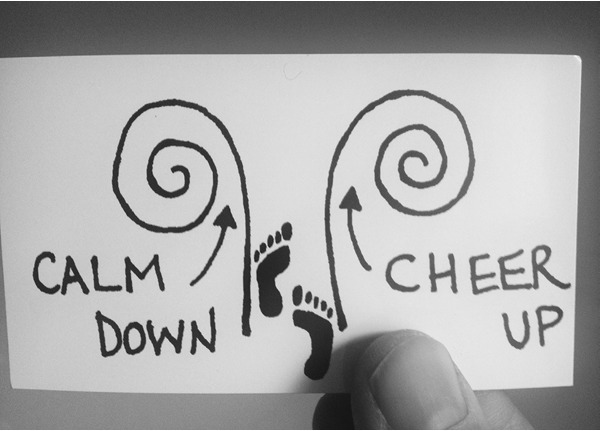 CALM
DOWN
CHEER
UP